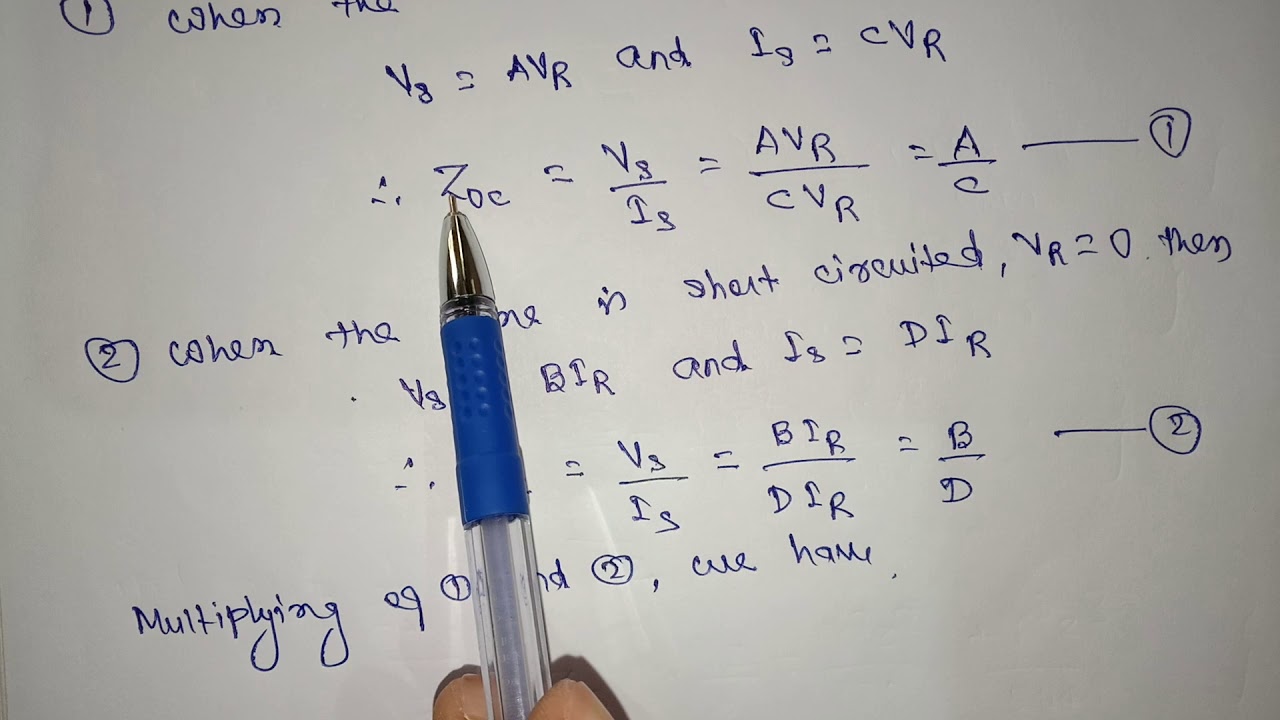 ① when the
Vs = AVR and Is = CVR
∴ Zoc = Vs/Is = AVR/CVR = A/C —— ①
② when the is short circuited, VR = 0. then
Vs BIR and Is = DIR
∴ = Vs/Is = BIR/DIR = B/D —— ②
Multiplying eq ① and ②, we have.